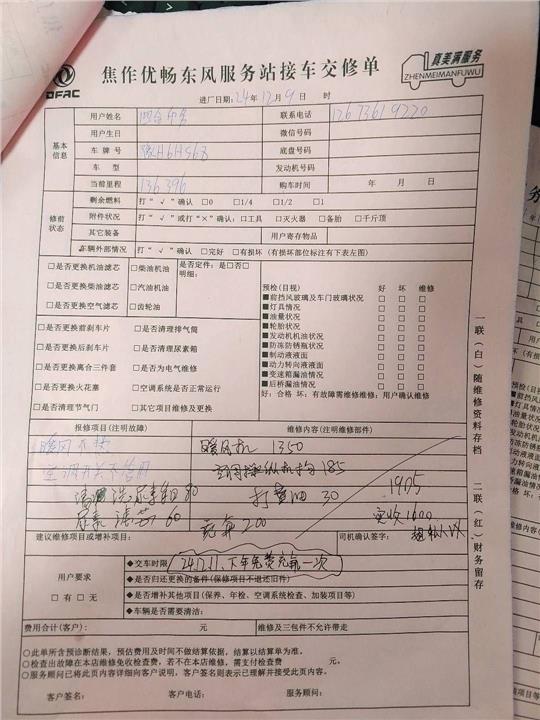 焦作优畅东风服务站接车交修单
DFAC
真美满服务
ZHENMEIMANFUWU
进厂日期:24年12月9日 时
基本信息
用户姓名
联系电话
用户生日 微信号码
车牌号 底盘号码
车型 发动机号码
当前里程 136396 购车时间 年 月 日
修前状态
剩余燃料 打“√”确认 □0 □1/4 □1/2 □1
附件状况 打“√”或打“×”确认:□工具 □灭火器 □备胎 □千斤顶
其它装备 用户寄存物品
车辆外部情况 打“√”确认 □完好 □有损坏 (有损坏部位标注有下表左图)
□是否更换机油滤芯 □柴油机油 是否定件:是□否□
明细:
□是否更换柴油滤芯 □汽油机油
□是否更换空气滤芯 □齿轮油
□是否更换前刹车片 □是否清理排气筒
□是否更换后刹车片 □是否清理尿素箱
□是否更换离合三件套 □是否为电气维修
□是否更换火花塞 □空调系统是否正常运行
□是否清理节气门 □其它项目维修及更换
预检(目视) 好 坏 维修
■前挡风玻璃及车门玻璃状况 □ □ □
■灯具情况 □ □ □
■油量状况 □ □ □
■轮胎状况 □ □ □
■发动机机油状况 □ □ □
■防冻防锈瓶状况 □ □ □
■制动液液面 □ □ □
■动力转向液液面 □ □ □
■变速箱漏油情况 □ □ □
■后桥漏油情况 □ □ □
好:合格 坏:有故障需维修维修:用户确认维修
报修项目(注明故障) 维修内容(注明维修部件)
暖风不热 暖风机 1350
空调开关不管用 185
80 打黄油 30 1905
尿素滤芯 60 充氟 200 实收1900
建议维修项目或增补项目: 司机确认签字:
用户要求
□有 □无
◆交车时限 24.12.11、下年免费充氟一次
◆是否归还更换的备件(保修项目不退还旧件)
◆是否增补其他项目(保养、年检、空调系统检查、加装项目等)
◆车辆是否需要清洁:
费用合计(客户): 元 维修及三包件不允许带走
○此单所含预诊断结果,预估费用及时间不做结算依据,结算以结算单为准。
○检查出故障在本店维修免收检查费,若不在本店维修,需支付检查费 元。
○服务顾问已将此页内容详细向客户说明,客户签名则表示已理解并接受此页内容。
客户签名: 客户电话: 服务顾问:
一联(白)随维修资料存档
二联(红)财务留存